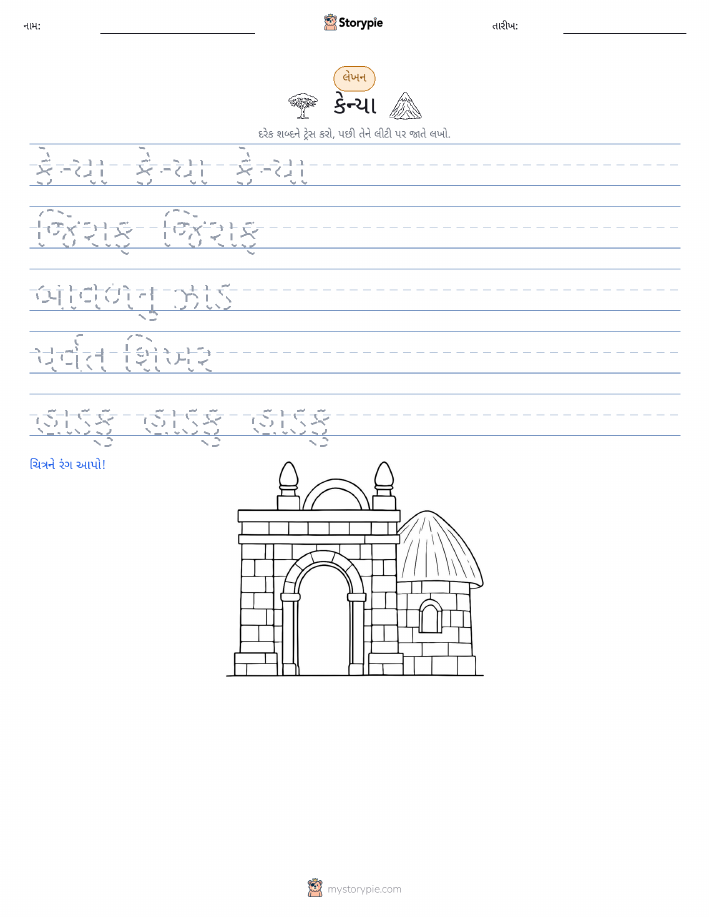 નામ:
Storypie
તારીખ:
લેખન
કેન્યા
દરેક શબ્દને ટ્રેસ કરો, પછી તેને લીટી પર જાતે લખો.
કેન્યા કેન્યા કેન્યા
જિરાફ જિરાફ
બાવળનુ ઝાડ
પર્વત શિખર
હાડકુ હાડકુ હાડકુ
ચિત્રને રંગ આપો!
mystorypie.com